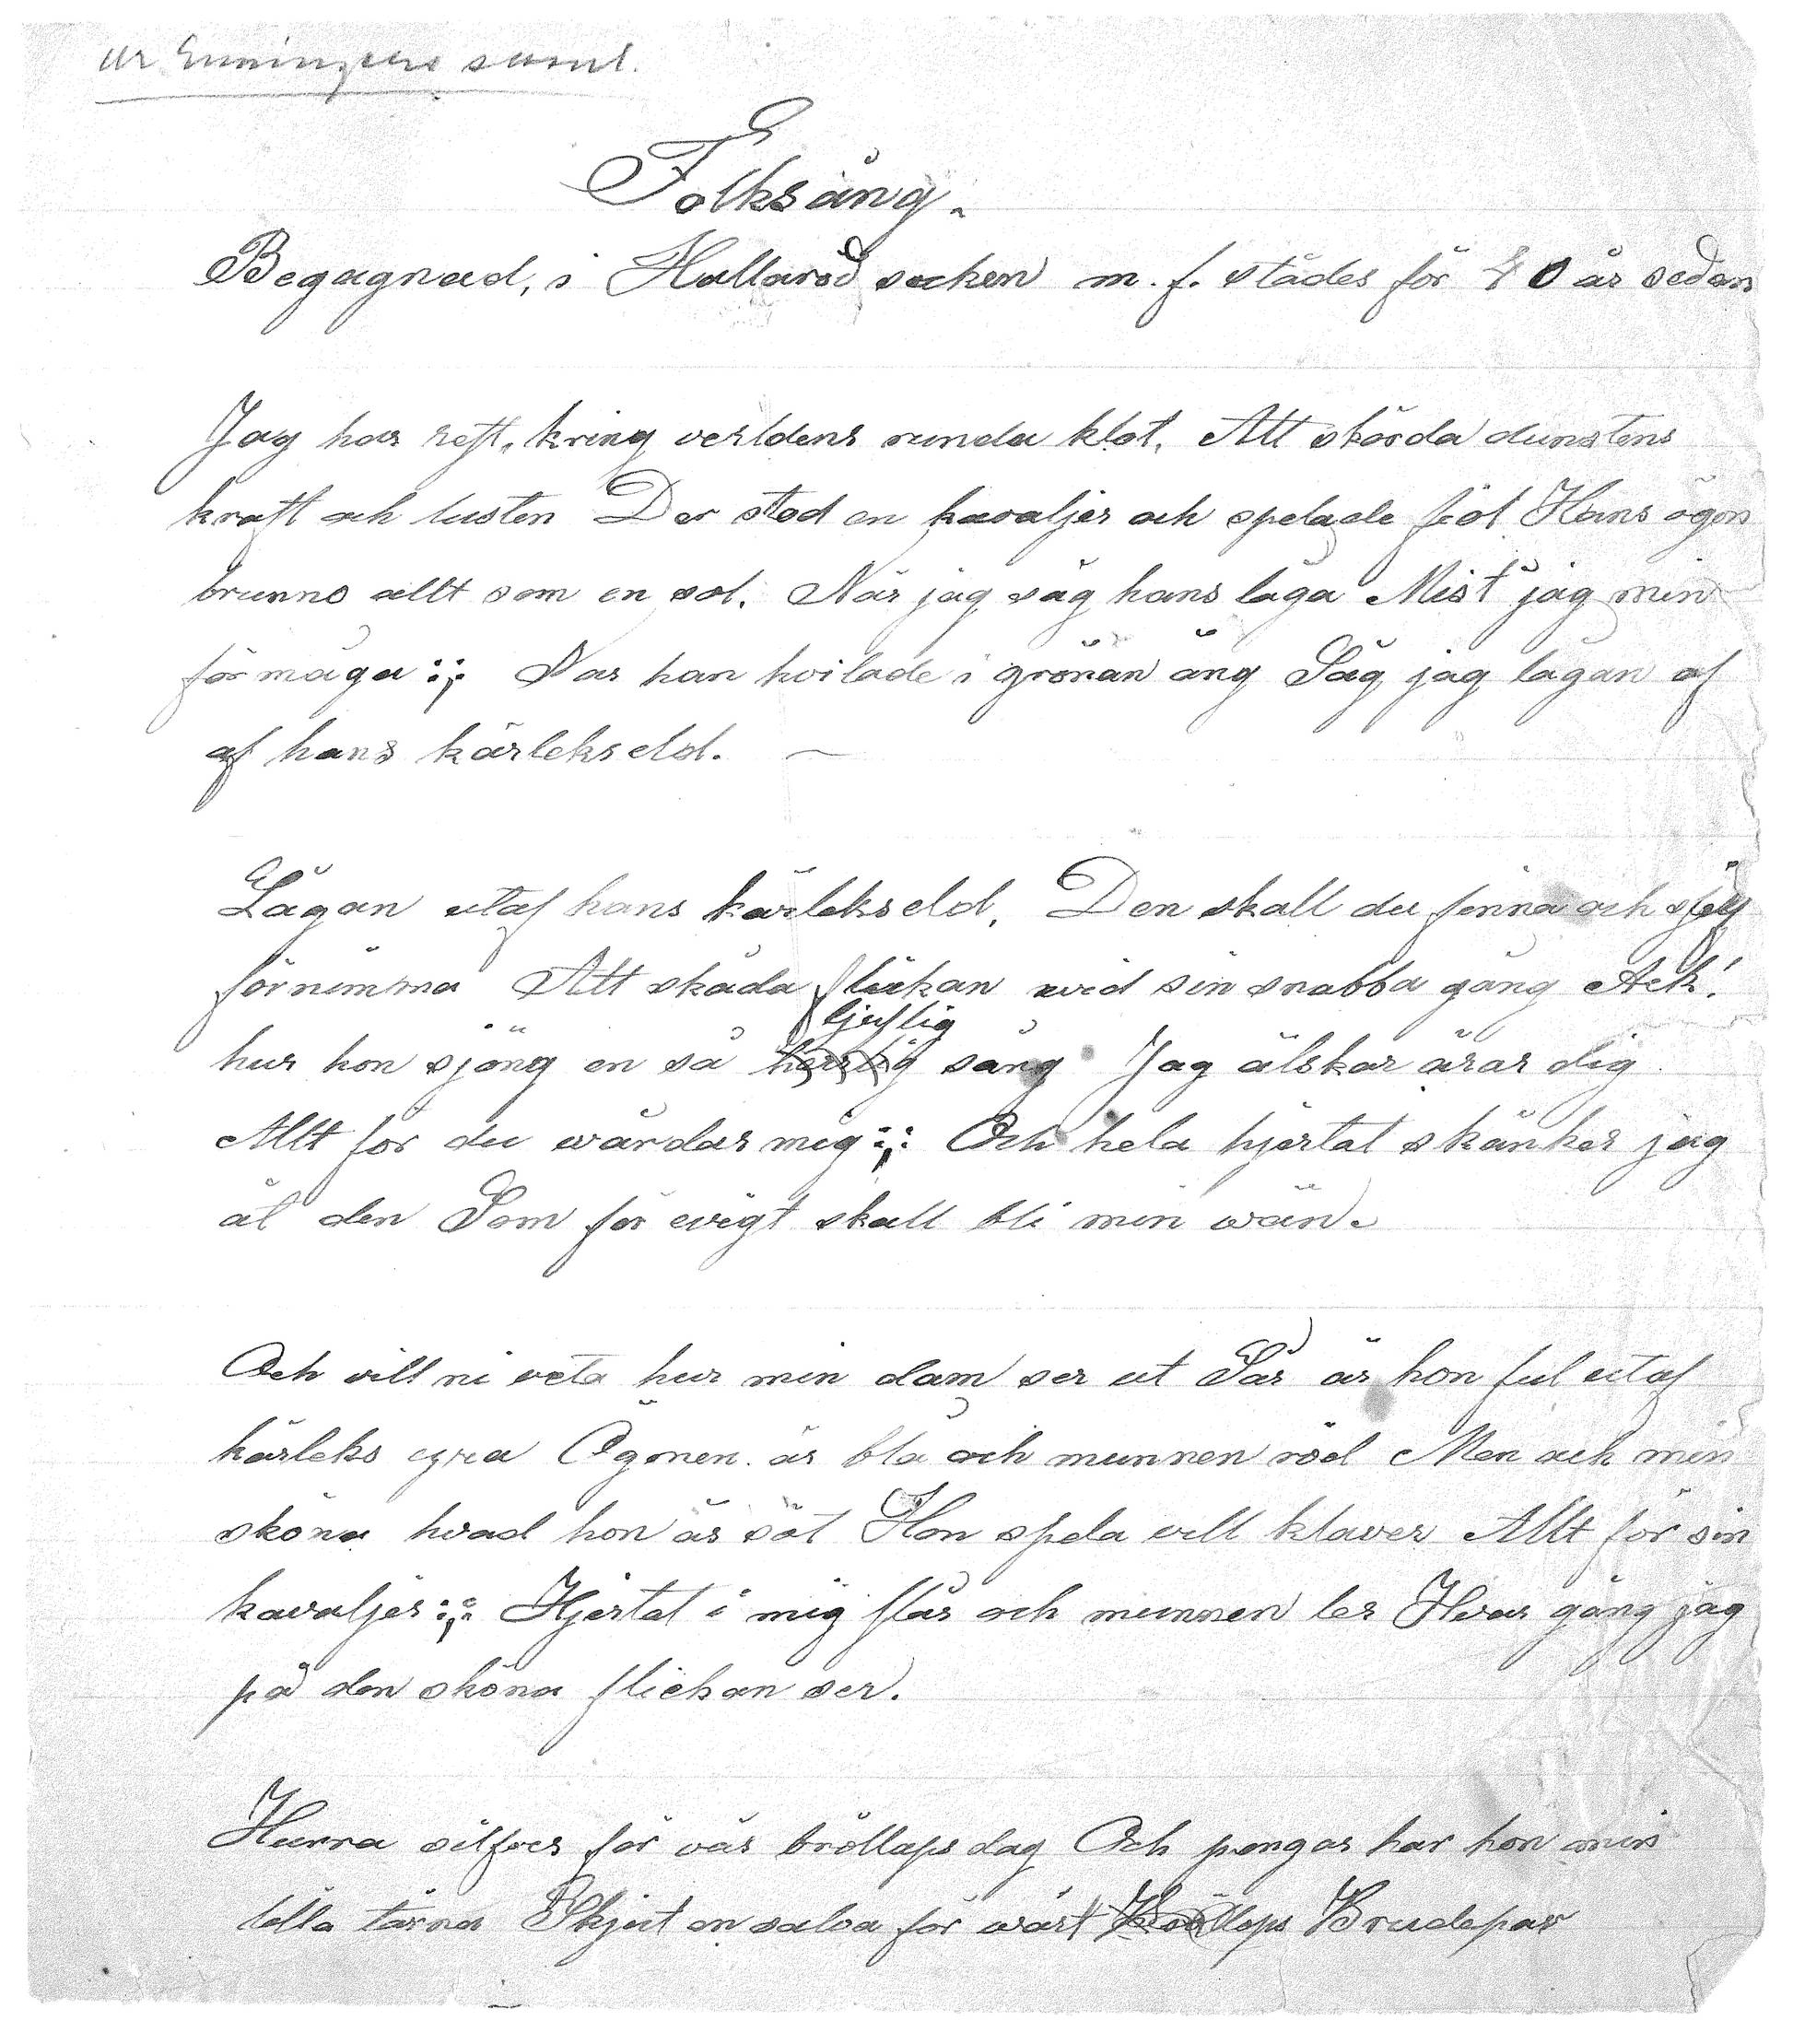 ur saml.
Folksång.
Begagnad, i Hallaröd socken m. f. städes för 40 år sedan
Jag har rest, kring verldens runda klot, Att skörda dunstens
kraft och lusten Der stod en kavaljer och spelade fiol Hans ögon
brunno allt som en sol. När jag såg hans låga Mist jag min
förmåga :;: När han hvilade i grönan äng Såg jag lågan af
af hans kärlekseld. —
Lågan utaf hans kärlekseld, Den skall du finna och sjelf
förnimma Att skåda flickan wid sin snabba gång Ack!
ljuflig
hur hon sjöng en så herrlig sång Jag älskar ärar dig
Allt för du wårdar mig :;: Och hela hjertat skänker jag
åt den Som för evigt skall bli min wän.
Och vill ni veta hur min dam ser ut Så är hon ful utaf
kärleks Ögonen är blå och munnen röd Men ack min
sköna hvad hon är söt Hon spela vill klaver Allt för sin
kavaljer :;: Hjertat i mig slår och munnen ler Hvar gång jag
på den sköna flickan ser.
Hurra silfver för vår bröllopsdag Och pengar har hon min
lilla tärna Skjut en salva för wårt Bröllops Brudepar